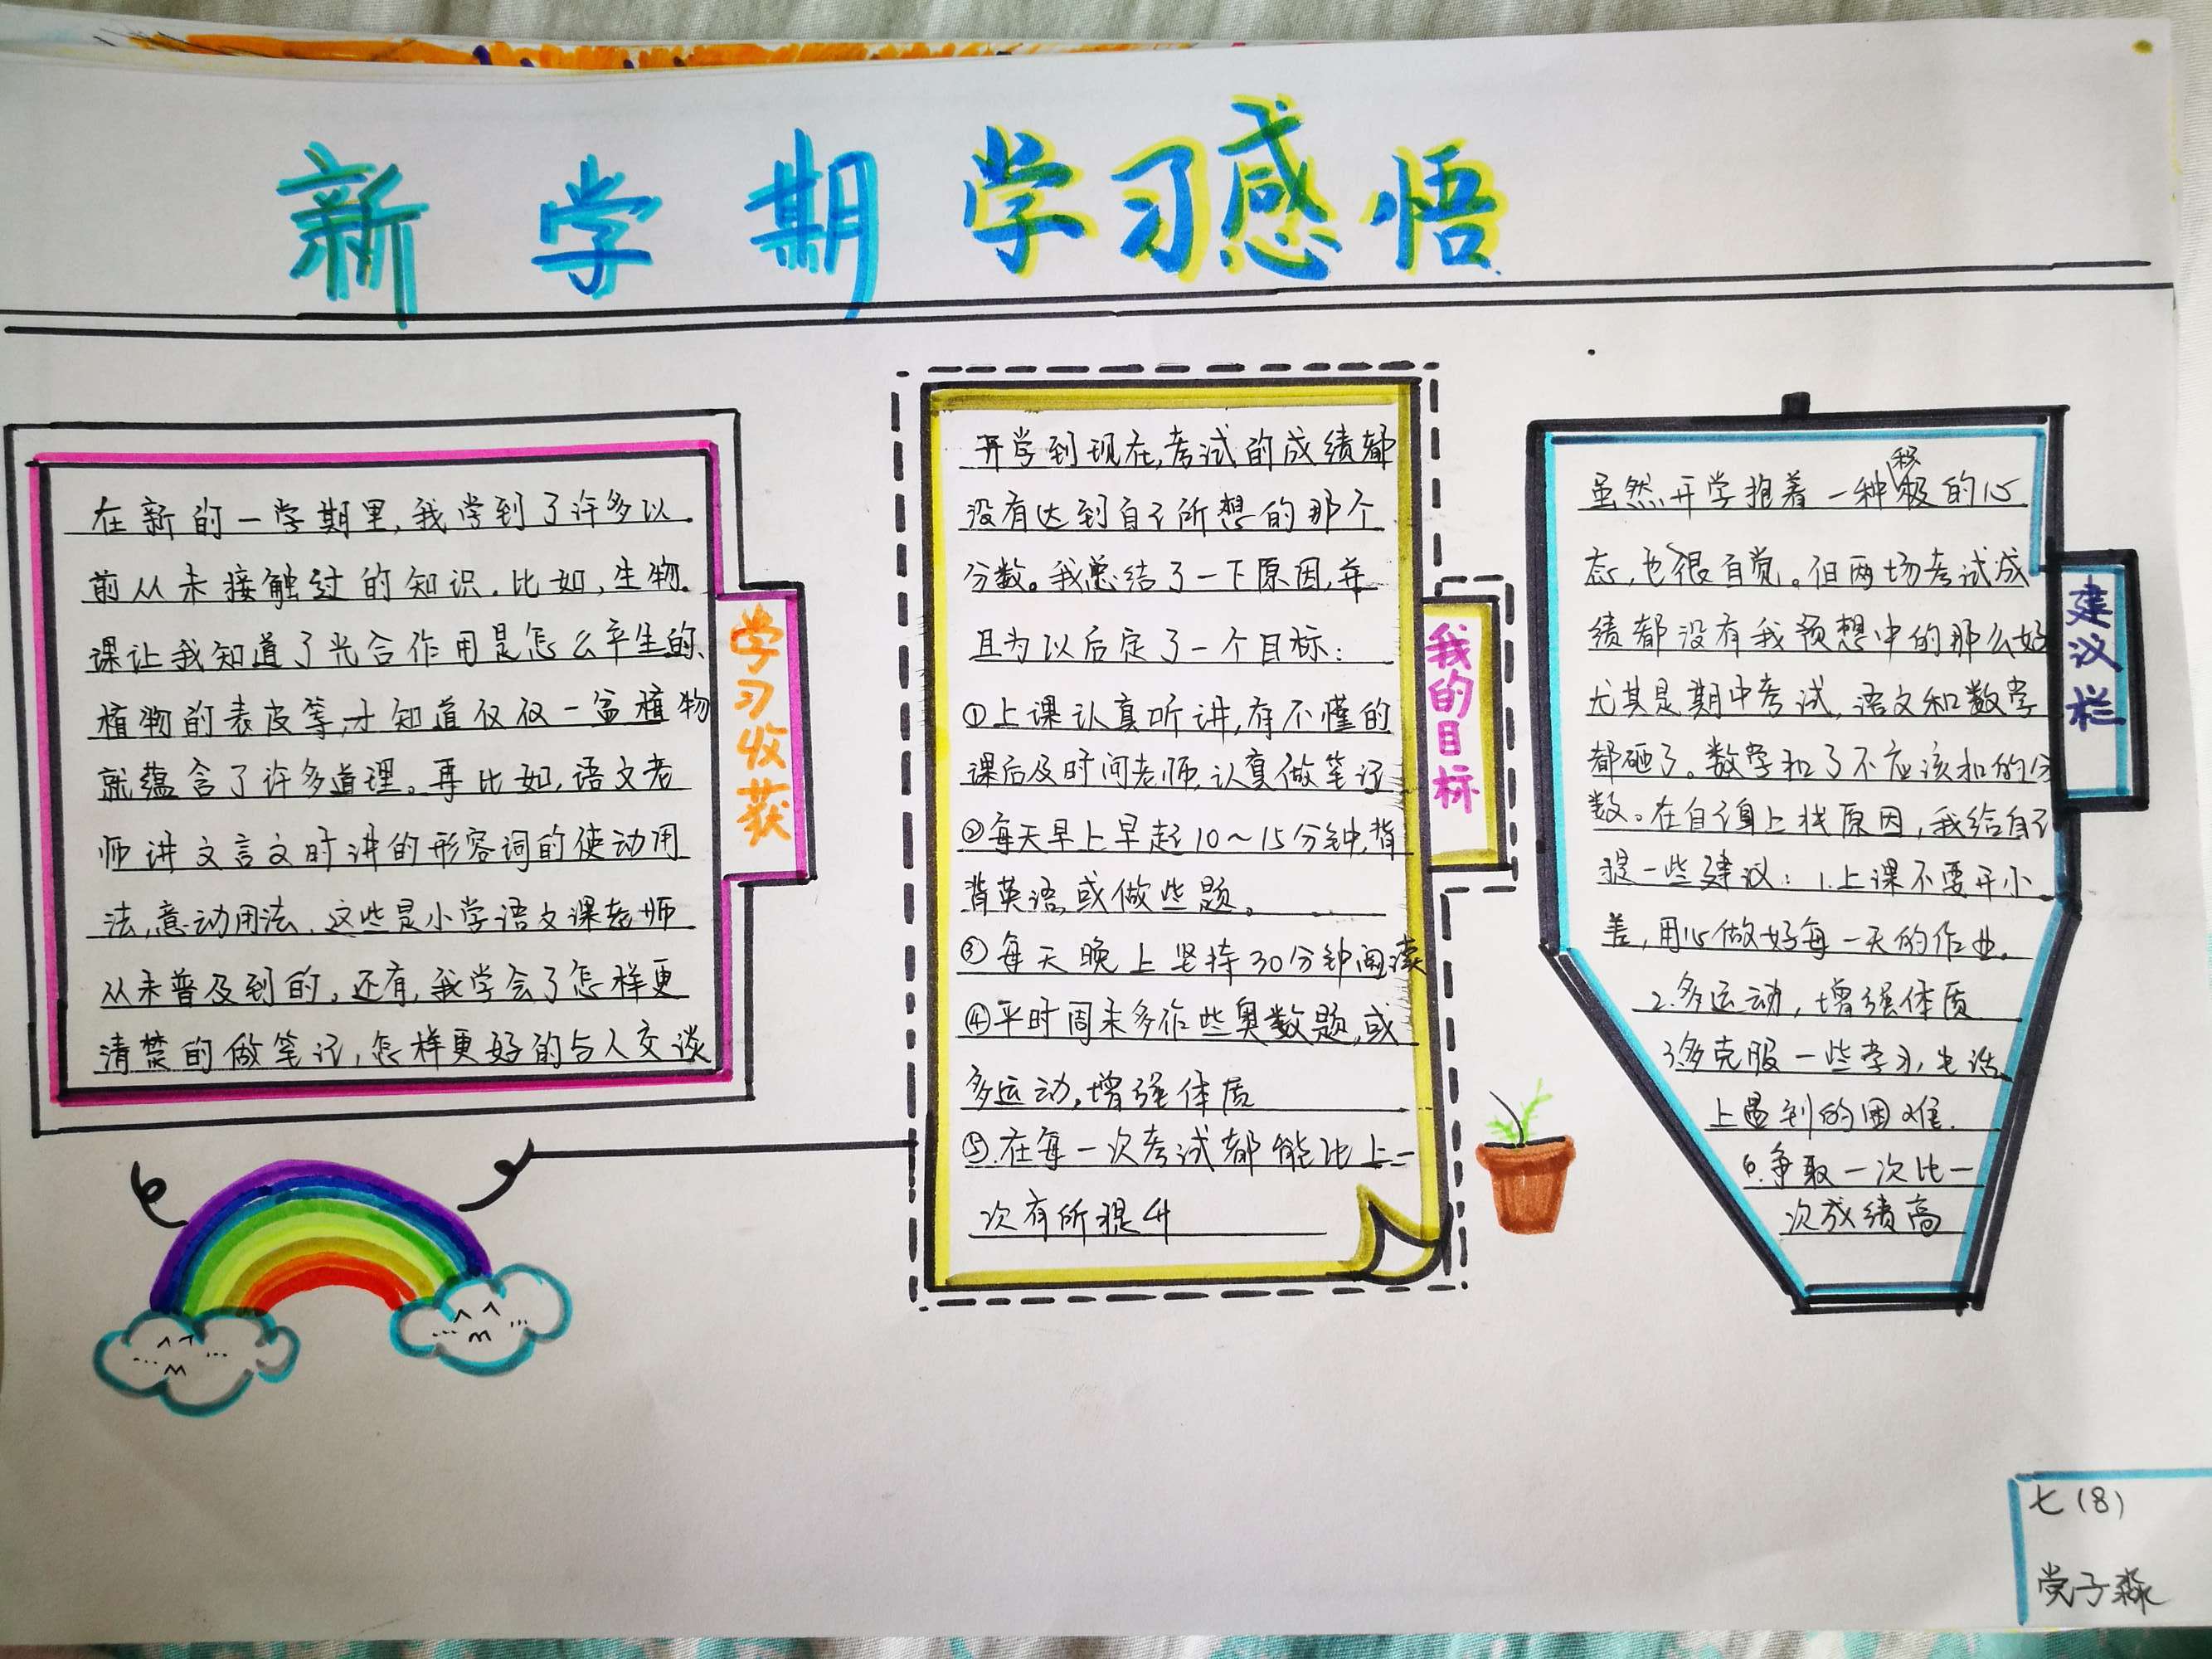 新学期学习感悟
在新的一学期里,我学到了许多以
前从未接触过的知识。比如,生物
课让我知道了光合作用是怎么产生的、
植物的表皮等,才知道仅仅一盆植物
就蕴含了许多道理。再比如,语文老
师讲文言文时讲的形容词的使动用
法,意动用法,这些是小学语文课老师
从未普及到的。还有,我学会了怎样更
清楚的做笔记,怎样更好的与人交谈
学习收获
开学到现在,考试的成绩都
没有达到自己所想的那个
分数。我总结了一下原因,并
且为以后定了一个目标:
①上课认真听讲,有不懂的
课后及时问老师,认真做笔记
②每天早上早起10~15分钟,背
背英语,或做些题。
③每天晚上坚持30分钟阅读
④平时周末多作些奥数题,或
多运动,增强体质
⑤.在每一次考试都能比上一
次有所提升
我的目标
虽然开学抱着一种积极的心
态,也很自觉。但两场考试成
绩都没有我预想中的那么好
尤其是期中考试,语文和数学
都砸了。数学扣了不应该扣的分
数。在自身上找原因,我给自己
提一些建议:1.上课不要开小
差,用心做好每一天的作业。
2.多运动,增强体质
3多克服一些学习,生活
上遇到的困难.
争取一次比一
次成绩高
建议栏
七(8)
党子淼